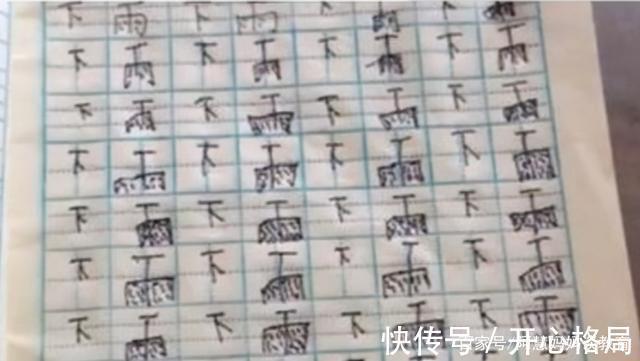 下雨下雨下雨下雨
下雨下雨下雨下雨
下雨下雨下雨下雨
下雨下雨下雨下雨
下雨下雨下雨下雨
下雨下雨下雨下雨
下雨下雨下雨下雨
快传号/开心格局